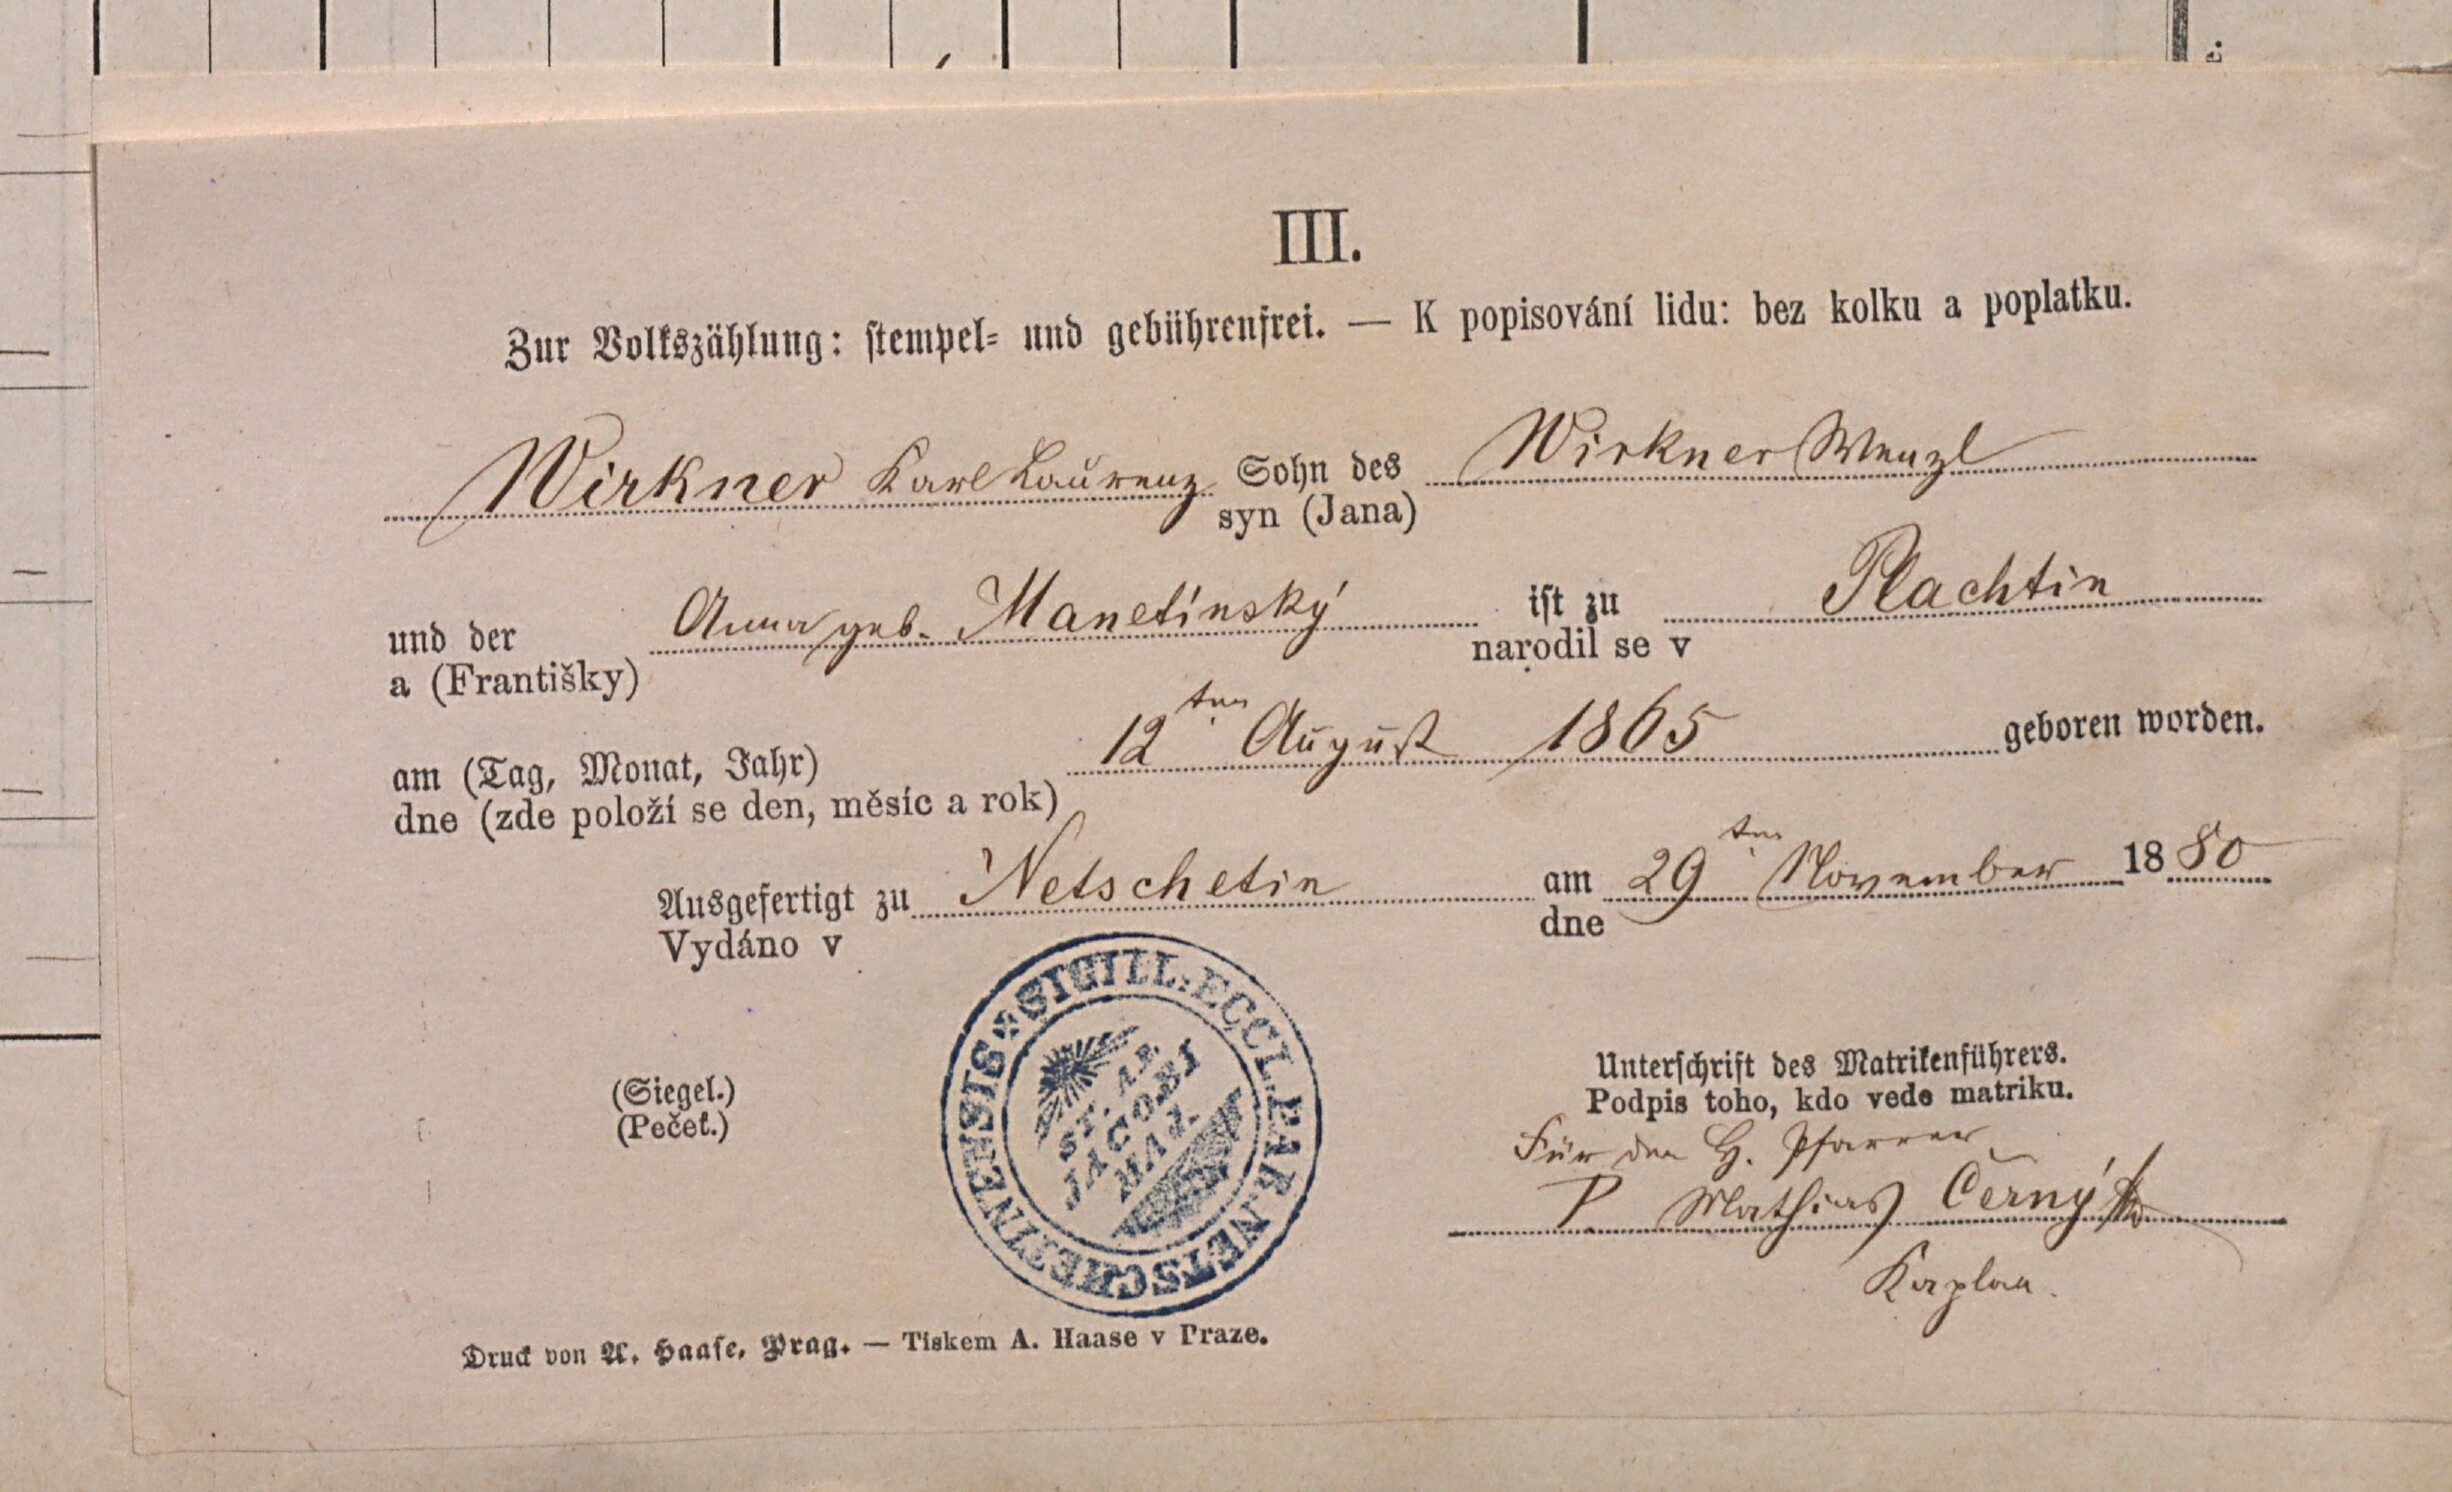 III.
Zur Volkszählung: stempel= und gebührenfrei. — K popisování lidu: bez kolku a poplatku.
Wirkner Karl Laurenz Sohn des Wirkner Wenzl
syn (Jana)
und der Anna geb. Manetínský ist zu Plachtin
a (Františky) narodil se v
am (Tag, Monat, Jahr) 12ten August 1865 geboren worden.
dne (zde položí se den, měsíc a rok)
Ausgefertigt zu Netschetin am 29ten November 1880
Vydáno v dne
SIGILL: ECCL. PAR. NETSCHETINENSIS
ST. AP.
JACOBI
MAJ.
(Siegel.)
(Pečeť.)
Unterschrift des Matrikenführers.
Podpis toho, kdo vede matriku.
Für den H. Pfarrer
P Mathias Černý
Kaplan.
Druck von A. Haase, Prag. — Tiskem A. Haase v Praze.